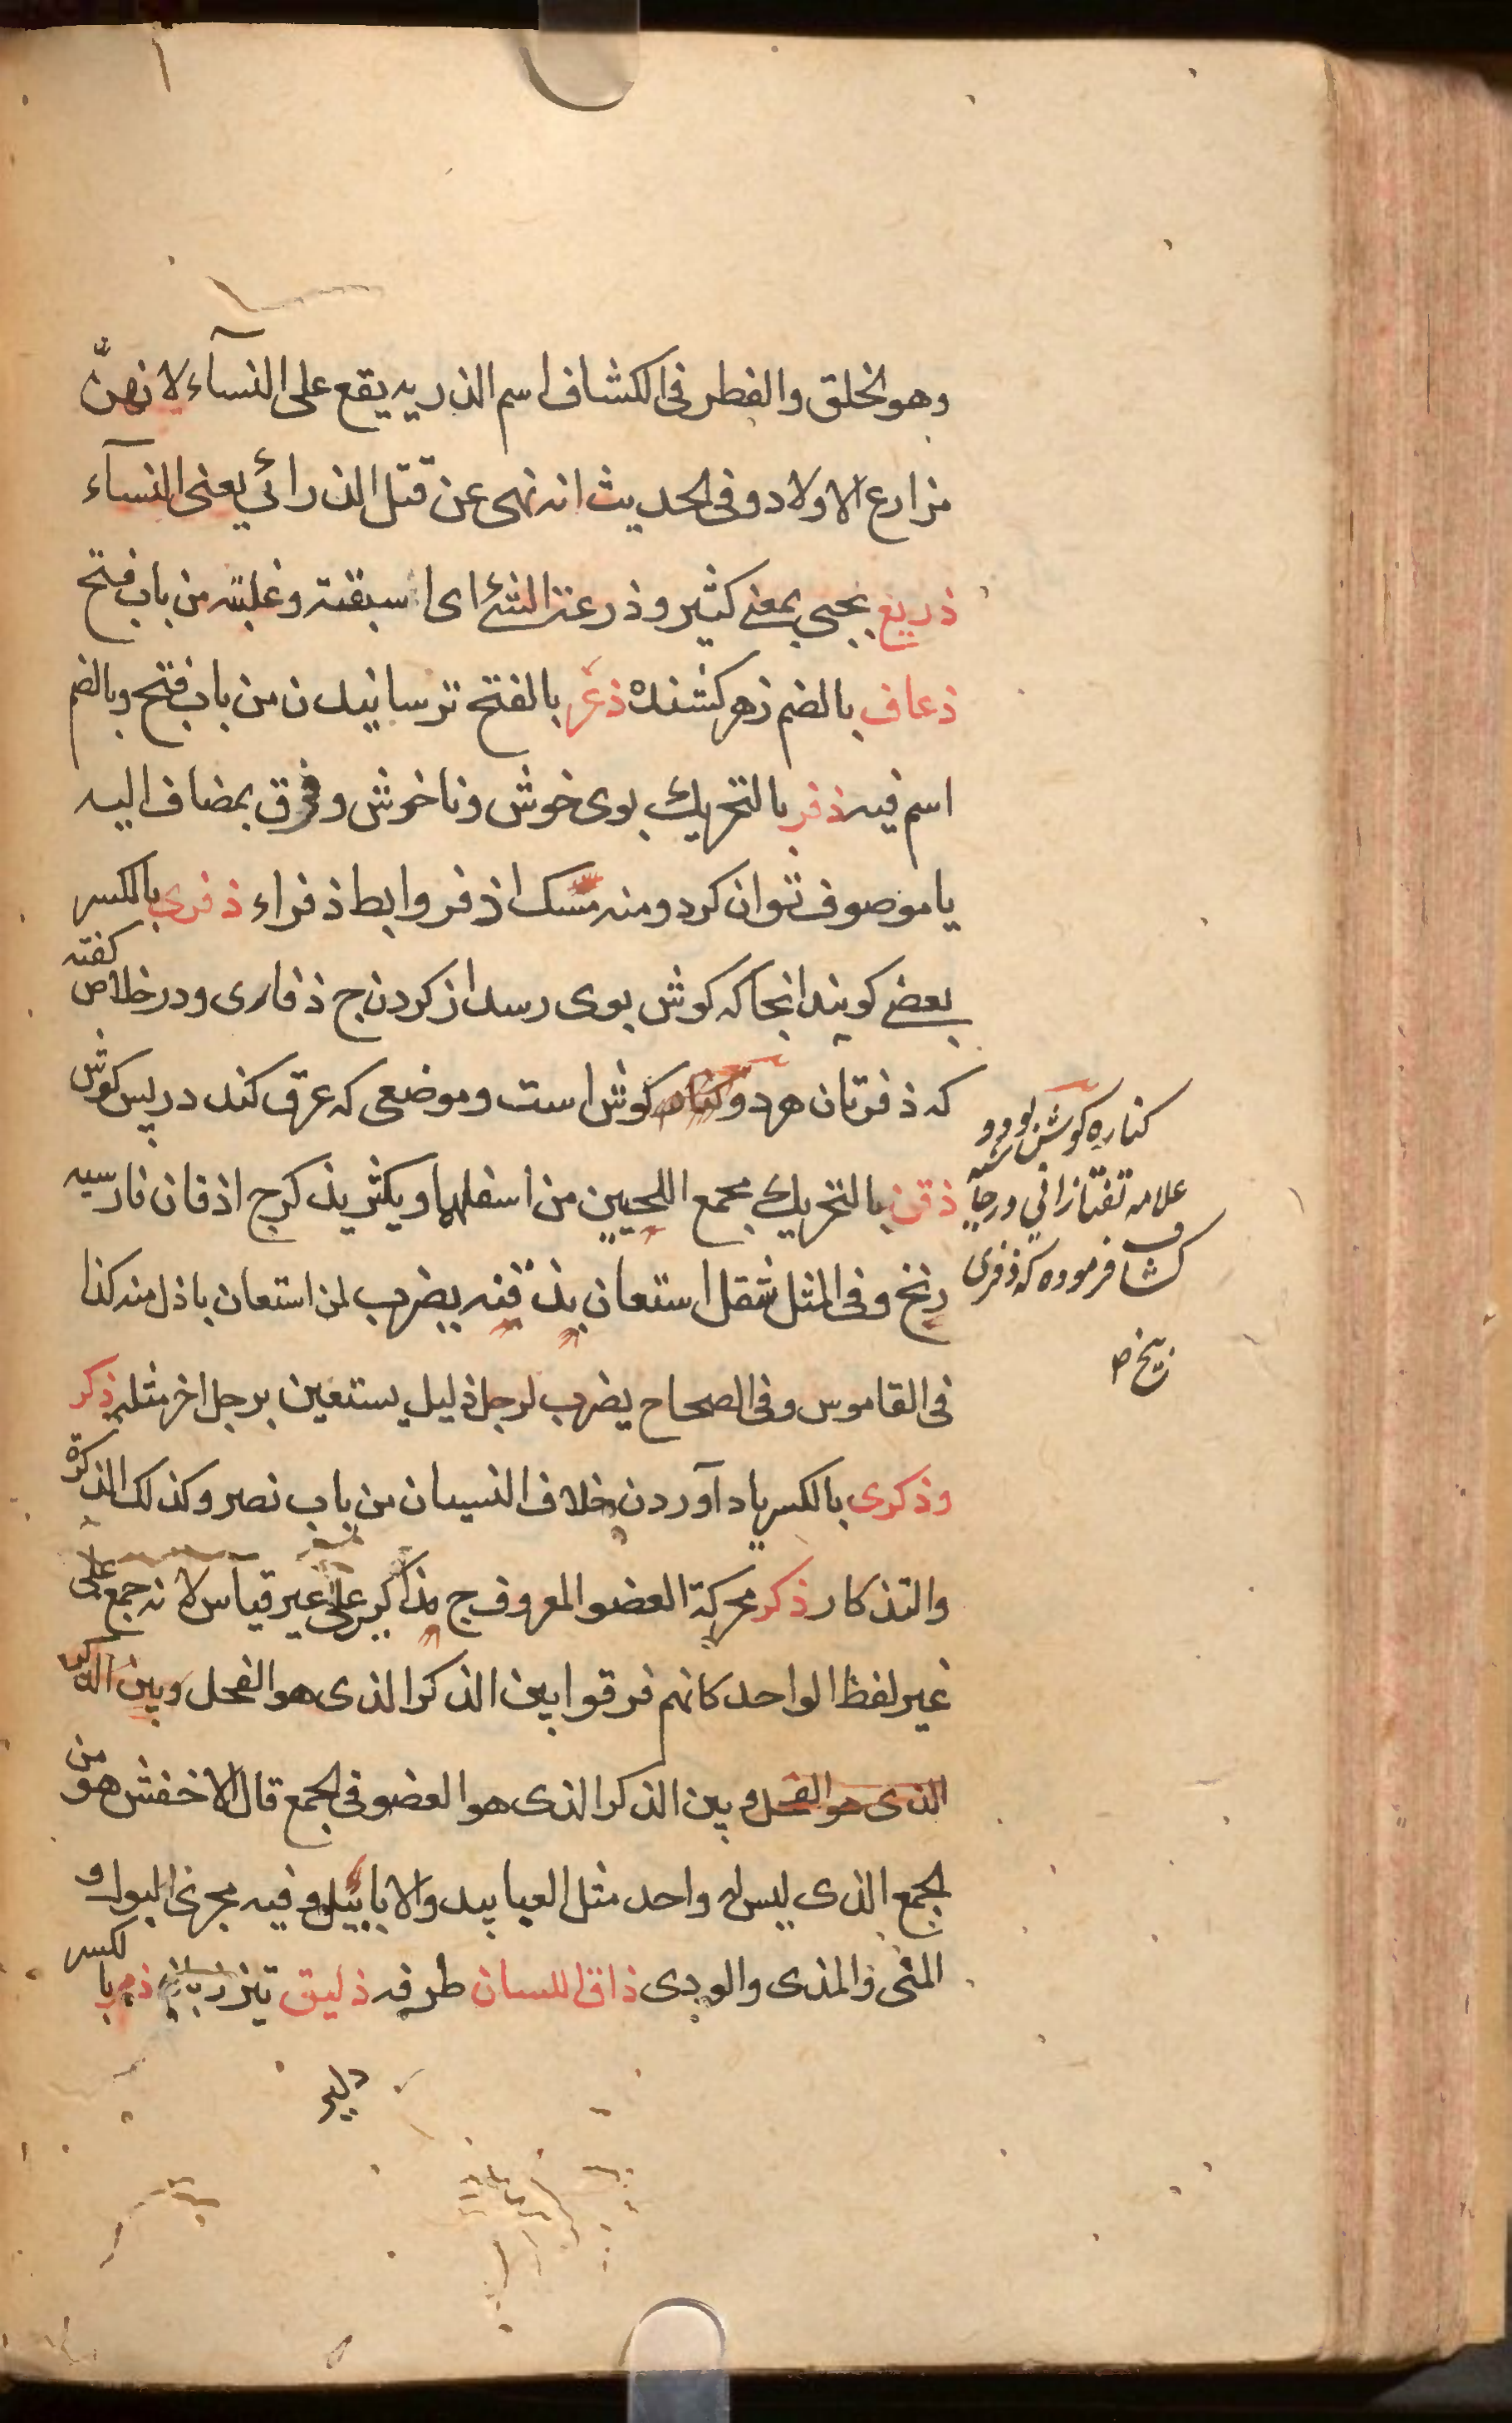 وهو الخلق والفطر فی الكشاف اسم الذريه يقع علی النسآء لانهنّ
مزارع الاولاد و فی الحديث انه نهی عن قتل الذرائي يعنی النسآء
ذريع بجيی بمعنے كثير و ذرعنه الشئ ای اسبقته وغلبته من باب فتح
ذعاف بالضم زهر كشنده ذعر بالفتح ترسانيدن من باب فتح وبالضم
اسم فيه ذفر بالتحريك بوی خوش وناخوش وفرق بمضاف اليه
يا موصوف توان كرد ومنه مسك اذفر وابط ذفراء ذفری بالكسر
بعضے كويند انجا كه كوش بوی رسد از كردن ج ذفاری ودر خلاص كفته
كه ذفرتان هر دو كوش است وموضعی كه عرق كند در پس كوش
ذقن بالتحريك مجمع اللحيين من اسفلهما ويكثر يذكر ج اذقان فارسيه
زنخ وفی المثل مثقل استعان بذقنه يضرب لمن استعان باذل منه كذا
فی القاموس وفی الصحاح يضرب لرجل ذليل يستعين برجل اخر مثله ذكر
وذكری بالكسر ياد آوردن خلاف النسيان من باب نصر وكذلك الذكرة
والتذكار ذكر محركة العضو المعروف ج مذاكير علی غير قيآس لانه جمع علی
غير لفظ الواحد كانهم فرقوا بين الذكر الذی هو الفحل وبين الذكر
الذی هو الفحل وبين الذكر الذی هو العضو فی الجمع قال الاخفش هو من
الجمع الذی ليس له واحد مثل العبابيد والابابيل وفيه مجری البول و
المنی والمذی والودی ذلق اللسان طرفه ذليق تيز زبان ذمر بالكسر
دلير
كناره كوش بود و
علامه تفتازانی در حآشیه
كشاف فرموده كه ذفری
زيخ ص